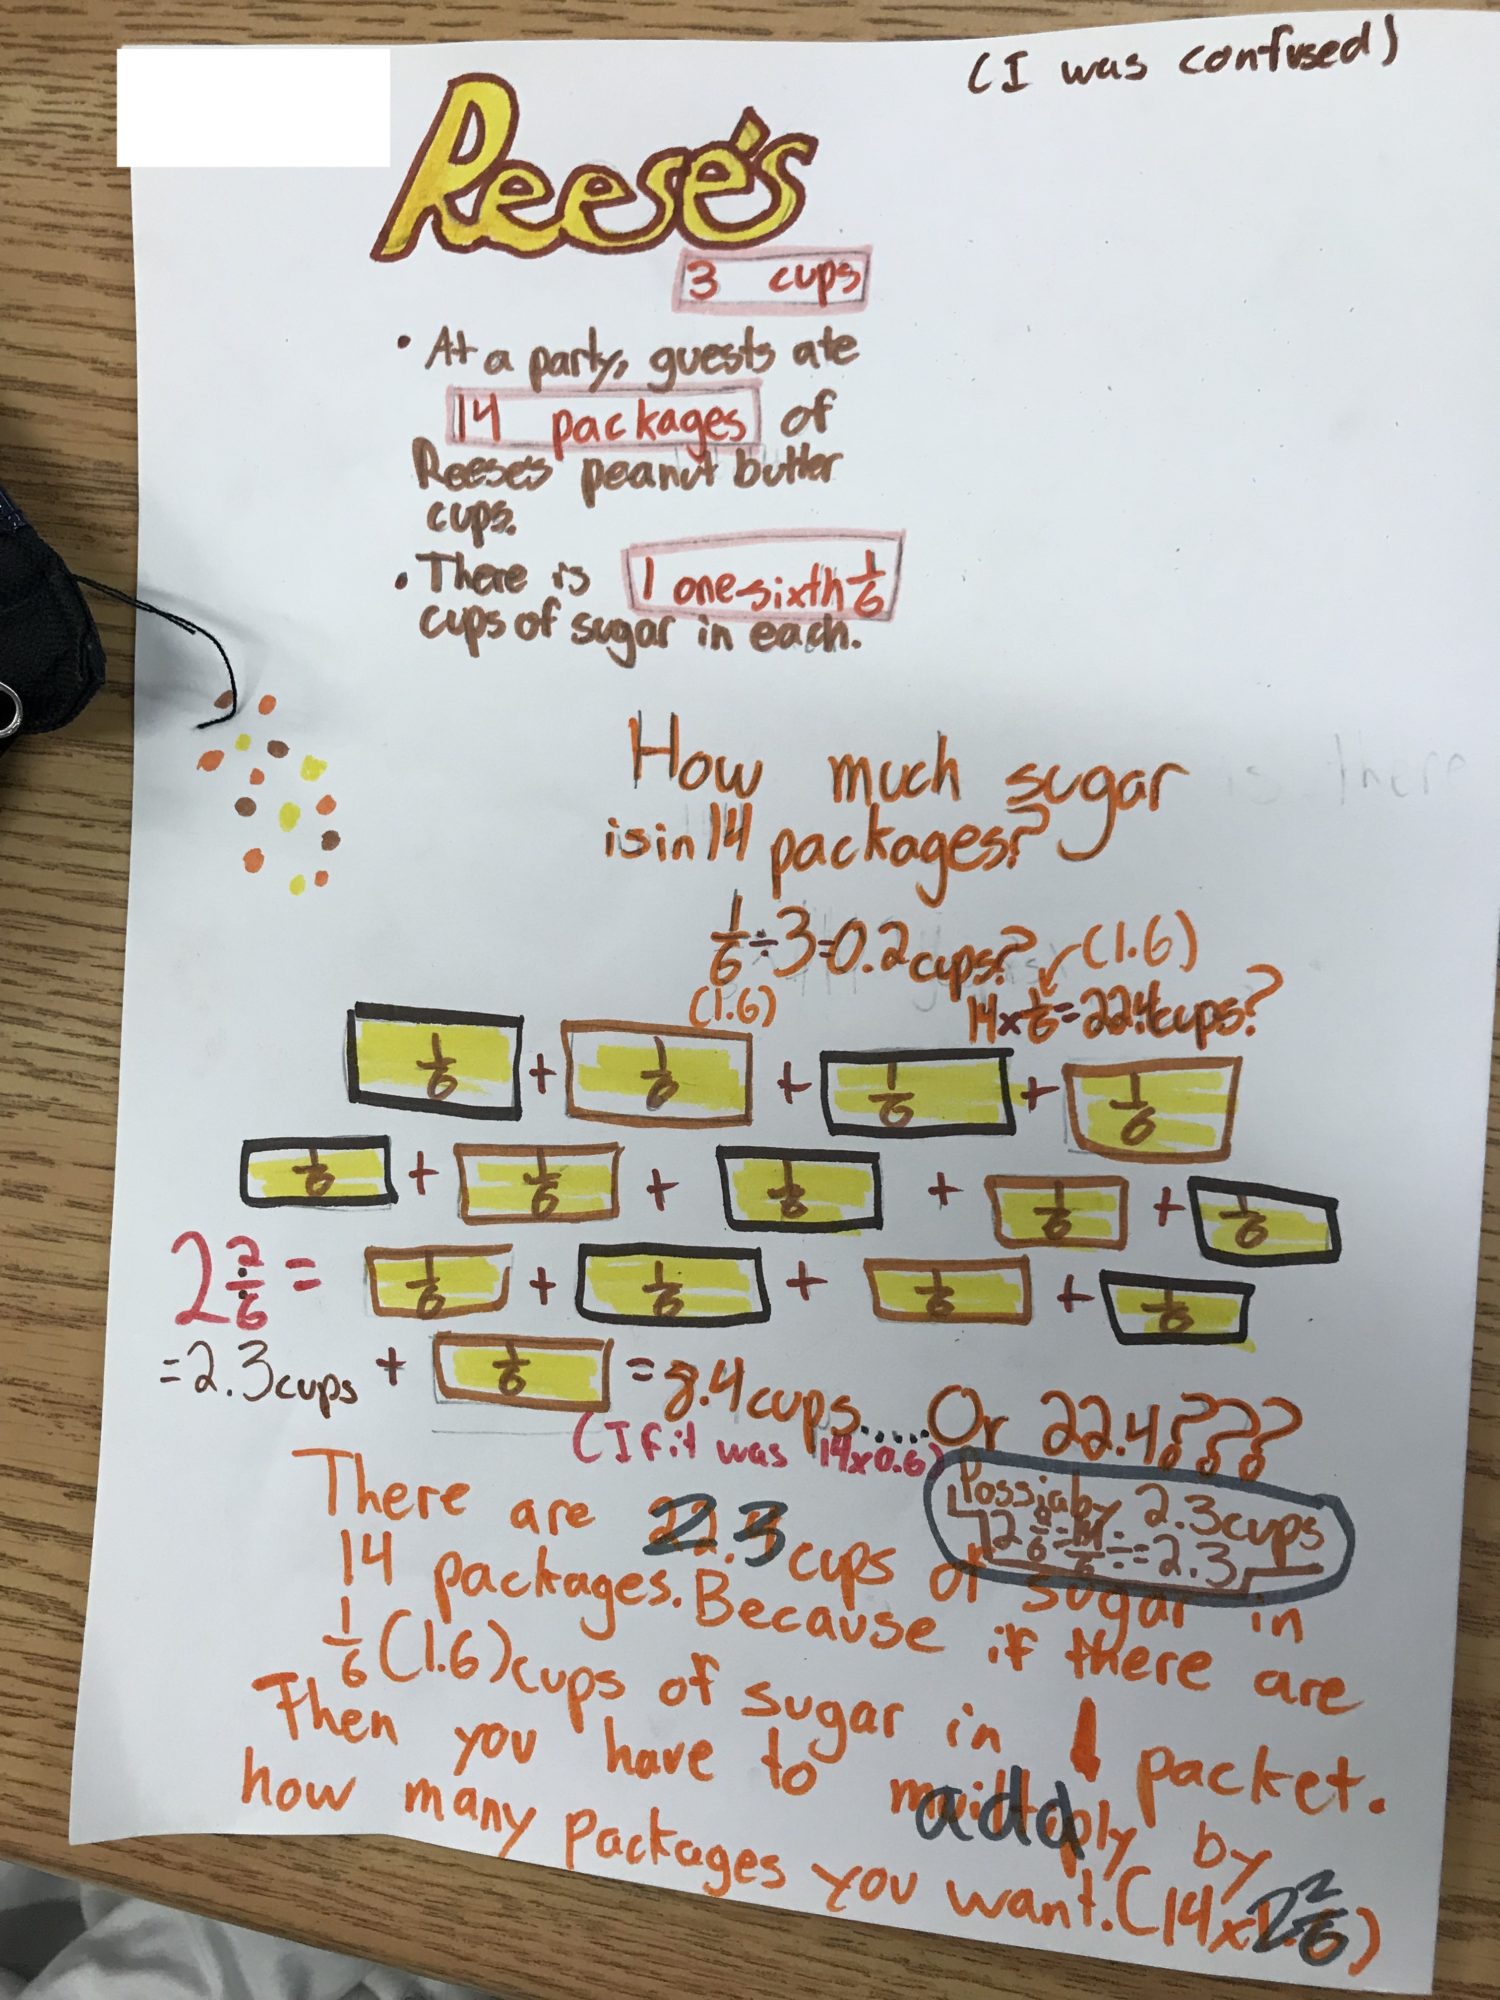 (I was confused)
Reese's
3 cups
• At a party, guests ate
14 packages of
Reese's peanut butter
cups.
• There is 1 one-sixth 1/6
cups of sugar in each.
How much sugar
is in 14 packages?
1/6 ÷ 3 = 0.2 cups? (1.6)
(1.6) 14 x 1/6 = 22.4 cups?
1/6 + 1/6 + 1/6 + 1/6
1/6 + 1/6 + 1/6 + 1/6 + 1/6
2 2/6 = 1/6 + 1/6 + 1/6 + 1/6
= 2.3 cups + 1/6 = 8.4 cups..... Or 22.4???
(If it was 14x0.6)
Possiaby 2.3 cups
2 2/6 = 14/6 ÷ = 2.3
There are 2.3 cups of sugar in
14 packages. Because if there are
1/6 (1.6) cups of sugar in 1 packet.
Then you have to add by
how many packages you want. (14x 2 2/6)